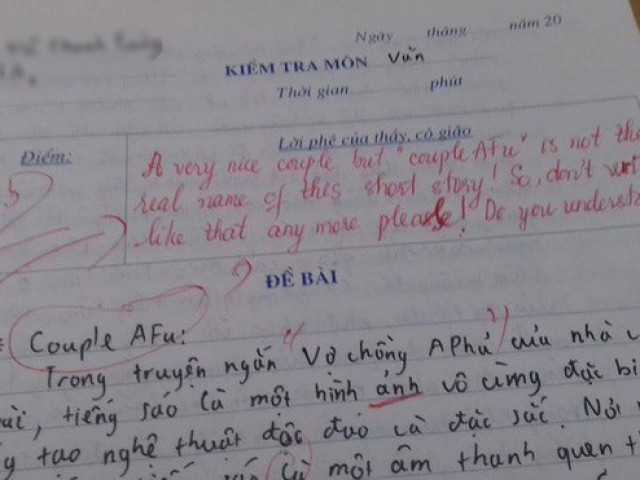 Ngày tháng năm 20
KIỂM TRA MÔN Văn
Thời gian phút
Điểm:
Lời phê của thầy, cô giáo
A very nice couple but "couple AFu" is not the
real name of this short story! So, don't
like that any more please! Do you
ĐỀ BÀI
Couple AFu:
Trong truyện ngắn "Vợ chồng A Phủ" của nhà
tiếng sáo là một hình ảnh vô cùng đặc
tạo nghệ thuật độc đáo và đặc sắc. Nói
là một âm thanh quen